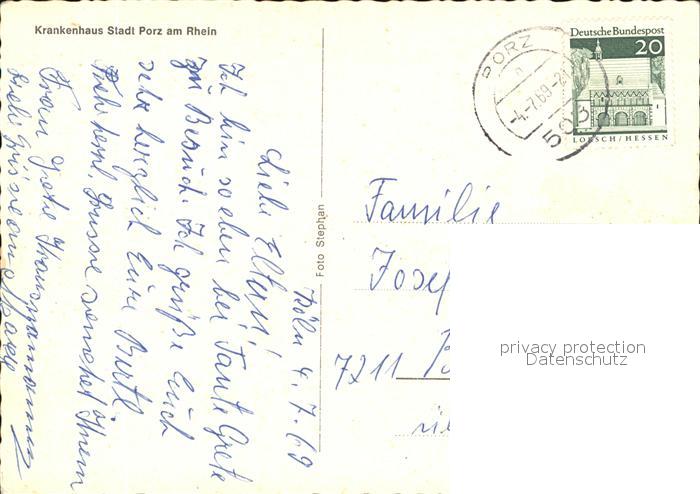 Krankenhaus Stadt Porz am Rhein
Köln 4.7.69
Liebe Eltern!
Ich bin soeben bei Tante Grete
zu Besuch. Ich grüße Euch
sehr herzlich Eure Bertl
Viele herzl. Grüsse sendet Ihnen
Frau Grete
viele Grüsse an
Foto Stephan
PORZ
-4.7.69-21
503
Deutsche Bundespost
20
LORSCH / HESSEN
Familie
Josef
7211
privacy protection
Datenschutz